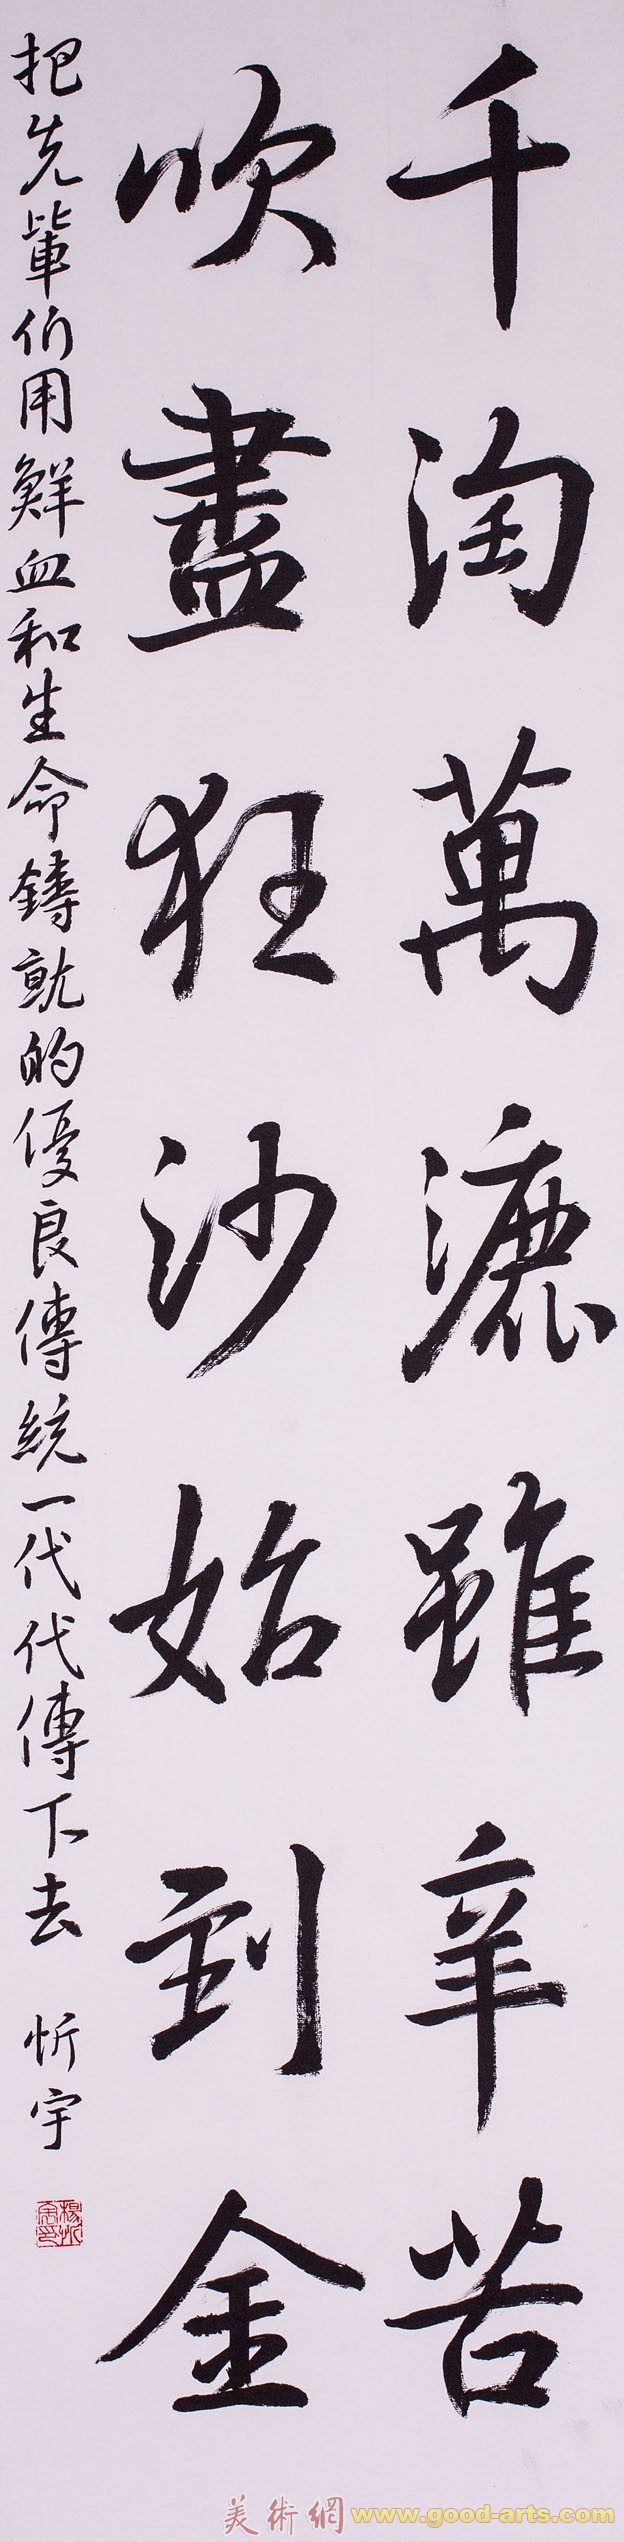 千淘萬漉雖辛苦
吹盡狂沙始到金
把先輩们用鮮血和生命鑄就的優良傳統一代代傳下去 忻宇
美術網 www.good-arts.com